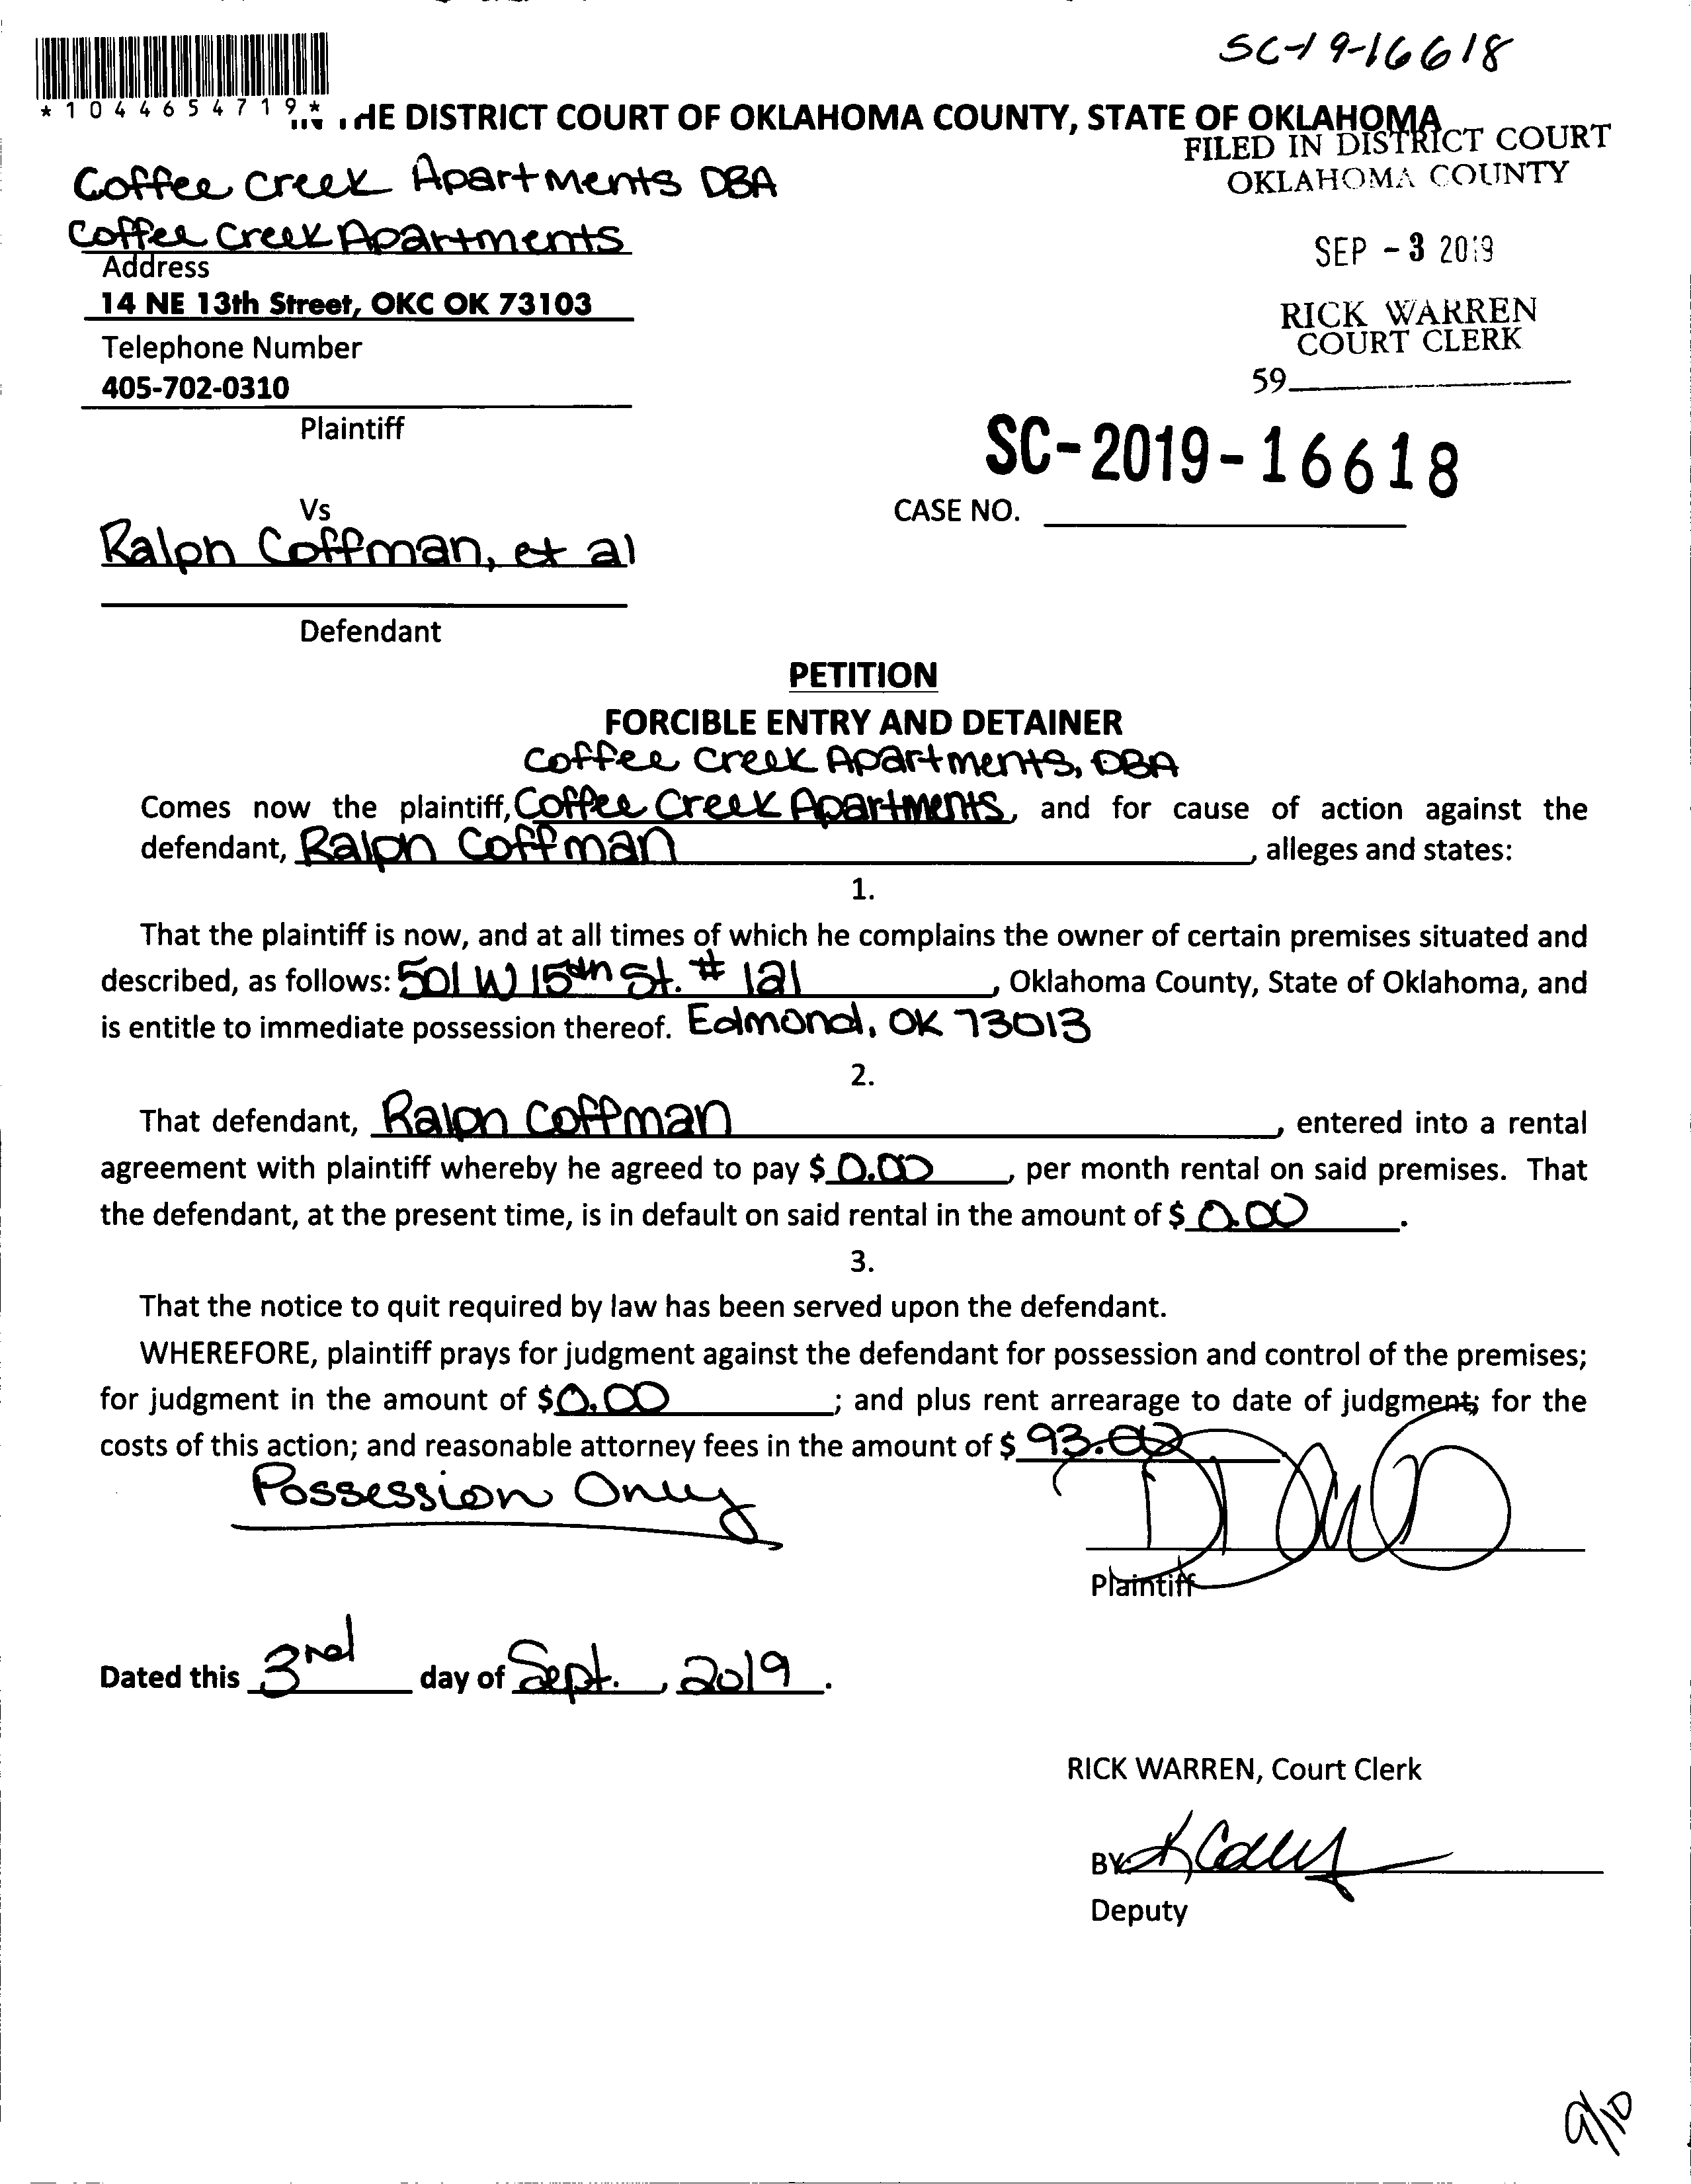 SC-19-16618
*1044654719*
THE DISTRICT COURT OF OKLAHOMA COUNTY, STATE OF OKLAHOMA
FILED IN DISTRICT COURT
OKLAHOMA COUNTY
Coffee Creek Apartments DBA
Coffee Creek Apartments
Address
SEP - 3 2019
14 NE 13th Street, OKC OK 73103
RICK WARREN
COURT CLERK
Telephone Number
405-702-0310
59
Plaintiff
SC-2019-16618
Vs
CASE NO.
Ralph Coffman, et al
Defendant
PETITION
FORCIBLE ENTRY AND DETAINER
Coffee Creek Apartments, DBA
Comes now the plaintiff, Coffee Creek Apartments, and for cause of action against the
defendant, Ralph Coffman, alleges and states:
1.
That the plaintiff is now, and at all times of which he complains the owner of certain premises situated and
described, as follows: 501 W 15th St. # 121, Oklahoma County, State of Oklahoma, and
is entitle to immediate possession thereof. Edmond, OK 73013
2.
That defendant, Ralph Coffman, entered into a rental
agreement with plaintiff whereby he agreed to pay $ 0.00, per month rental on said premises. That
the defendant, at the present time, is in default on said rental in the amount of $ 0.00.
3.
That the notice to quit required by law has been served upon the defendant.
WHEREFORE, plaintiff prays for judgment against the defendant for possession and control of the premises;
for judgment in the amount of $0.00; and plus rent arrearage to date of judgment; for the
costs of this action; and reasonable attorney fees in the amount of $ 93.00
Possession Only
Plaintiff
Dated this 3rd day of Sept., 2019.
RICK WARREN, Court Clerk
BY:
Deputy
9/10